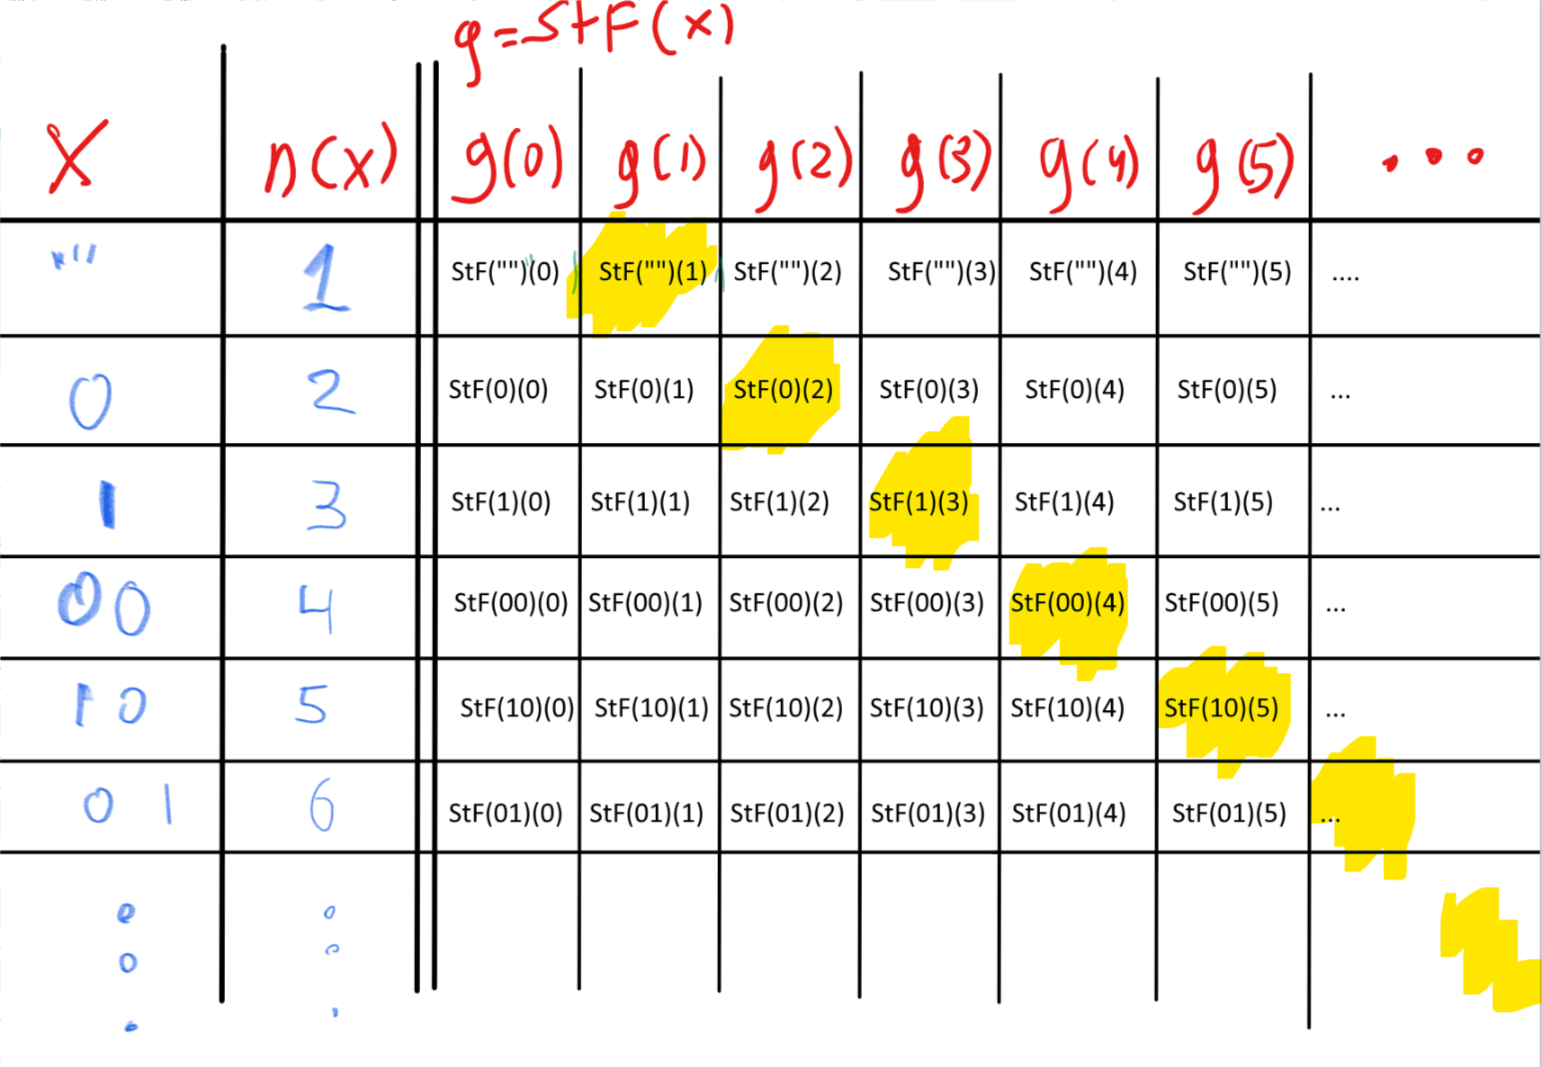 g=StF(x)
X n(x) g(0) g(1) g(2) g(3) g(4) g(5) ...
"" 1 StF("")(0) StF("")(1) StF("")(2) StF("")(3) StF("")(4) StF("")(5) ....
0 2 StF(0)(0) StF(0)(1) StF(0)(2) StF(0)(3) StF(0)(4) StF(0)(5) ...
1 3 StF(1)(0) StF(1)(1) StF(1)(2) StF(1)(3) StF(1)(4) StF(1)(5) ...
00 4 StF(00)(0) StF(00)(1) StF(00)(2) StF(00)(3) StF(00)(4) StF(00)(5) ...
10 5 StF(10)(0) StF(10)(1) StF(10)(2) StF(10)(3) StF(10)(4) StF(10)(5) ...
01 6 StF(01)(0) StF(01)(1) StF(01)(2) StF(01)(3) StF(01)(4) StF(01)(5) ...